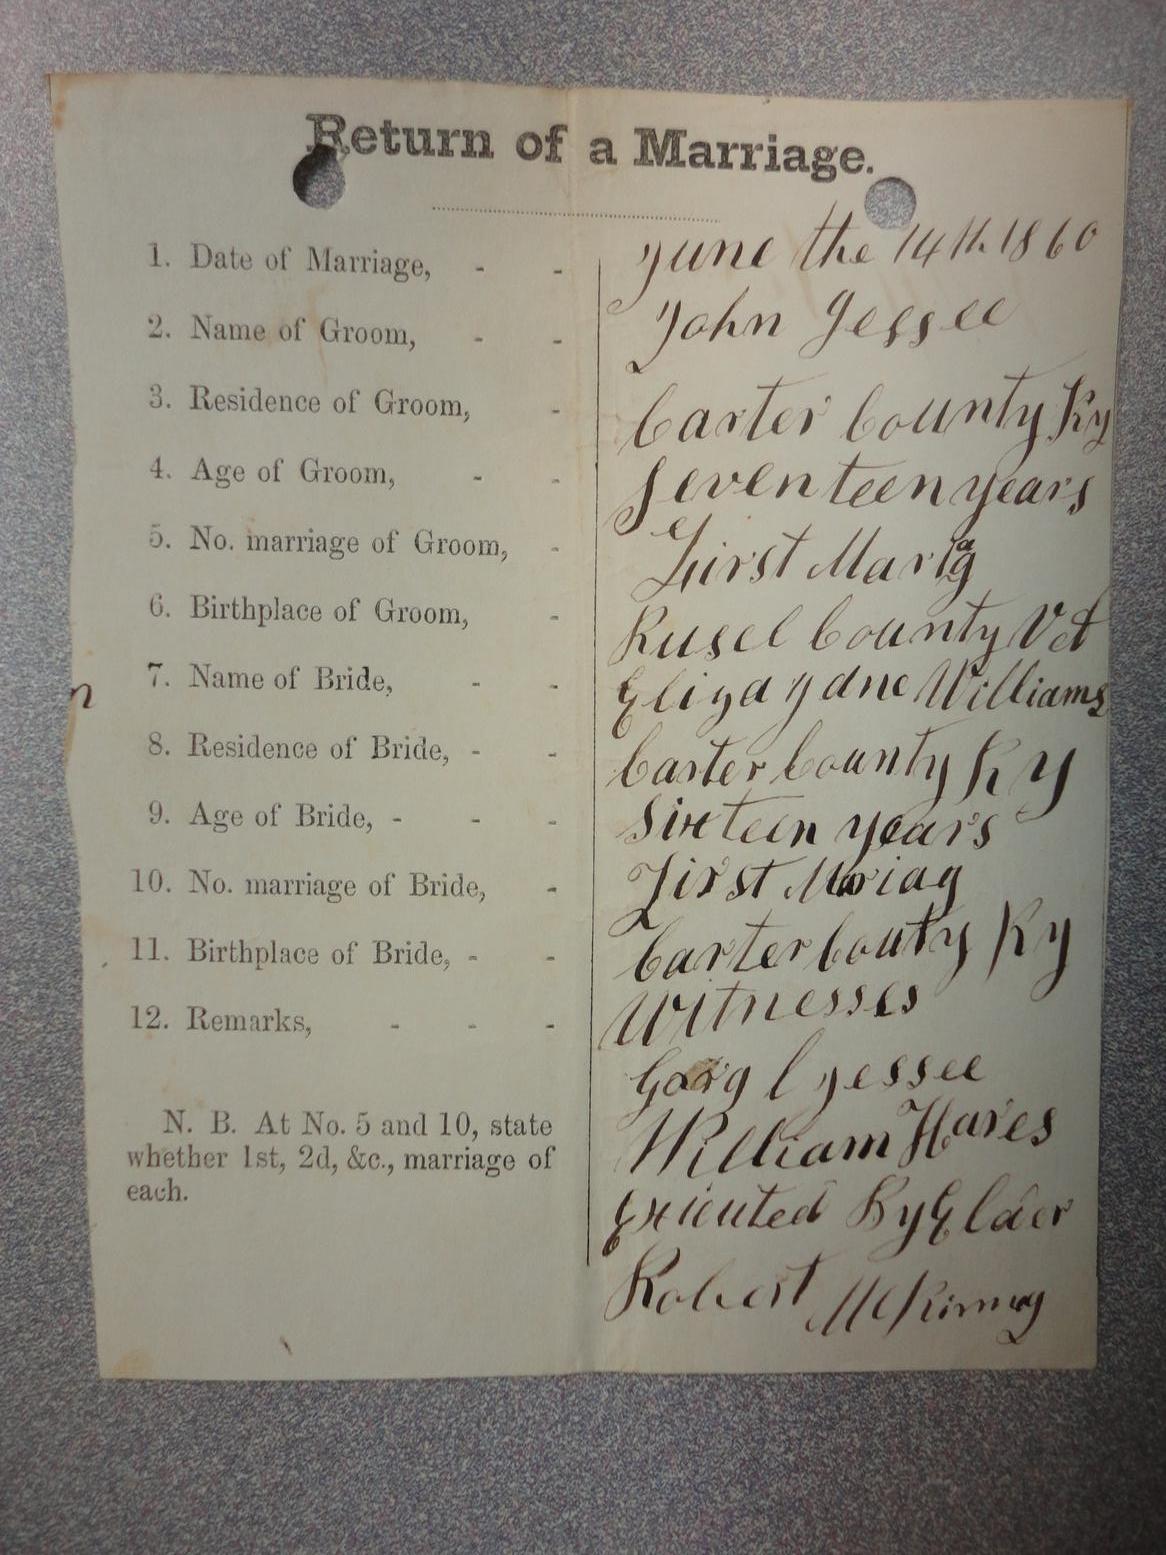 Return of a Marriage.
1. Date of Marriage, - - June the 14th 1860
2. Name of Groom, - - John Jessee
3. Residence of Groom, - Carter County Ky
4. Age of Groom, - - Seventeen years
5. No. marriage of Groom, - First Mariag
6. Birthplace of Groom, - Rusel County
7. Name of Bride, - - Eliza Jane Williams
8. Residence of Bride, - - Carter County Ky
9. Age of Bride, - - - Sixteen years
10. No. marriage of Bride, - First Mariag
11. Birthplace of Bride, - - Carter Couty Ky
12. Remarks, - - - Witnesses
Gorg C Jessee
William Hares
N. B. At No. 5 and 10, state
whether 1st, 2d, &c., marriage of
each.
Exicuted By Elder
Robert McKinney
n